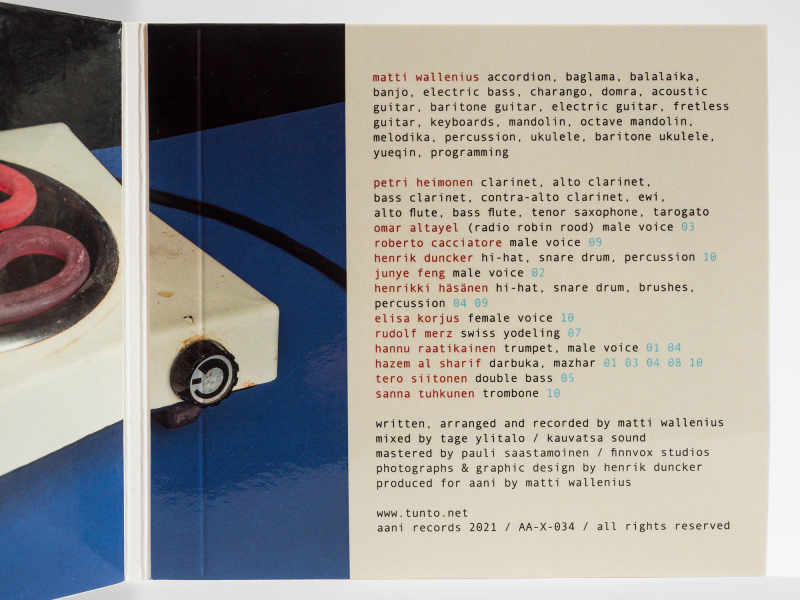 matti wallenius accordion, baglama, balalaika,
banjo, electric bass, charango, domra, acoustic
guitar, baritone guitar, electric guitar, fretless
guitar, keyboards, mandolin, octave mandolin,
melodika, percussion, ukulele, baritone ukulele,
yueqin, programming
petri heimonen clarinet, alto clarinet,
bass clarinet, contra-alto clarinet, ewi,
alto flute, bass flute, tenor saxophone, tarogato
omar altayel (radio robin rood) male voice 03
roberto cacciatore male voice 09
henrik duncker hi-hat, snare drum, percussion 10
junye feng male voice 02
henrikki häsänen hi-hat, snare drum, brushes,
percussion 04 09
elisa korjus female voice 10
rudolf merz swiss yodeling 07
hannu raatikainen trumpet, male voice 01 04
hazem al sharif darbuka, mazhar 01 03 04 08 10
tero siitonen double bass 05
sanna tuhkunen trombone 10
written, arranged and recorded by matti wallenius
mixed by tage ylitalo / kauvatsa sound
mastered by pauli saastamoinen / finnvox studios
photographs & graphic design by henrik duncker
produced for aani by matti wallenius
www.tunto.net
aani records 2021 / AA-X-034 / all rights reserved